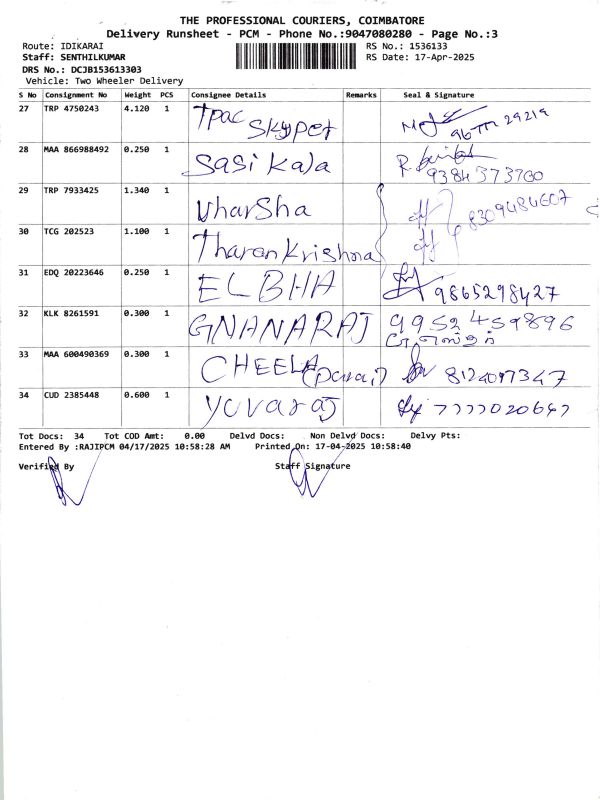 THE PROFESSIONAL COURIERS, COIMBATORE
Delivery Runsheet - PCM - Phone No.:9047080280 - Page No.:3
Route: IDIKARAI RS No.: 1536133
Staff: SENTHILKUMAR RS Date: 17-Apr-2025
DRS No.: DCJB153613303
Vehicle: Two Wheeler Delivery
S No Consignment No Weight PCS Consignee Details Remarks Seal & Signature
27 TRP 4750243 4.120 1 Tpac Skyper
28 MAA 866988492 0.250 1 Sasi Kala 9384373700
29 TRP 7933425 1.340 1 Vharsha 8309484607
30 TCG 202523 1.100 1 Tharan Krishna
31 EDQ 20223646 0.250 1 ELBHA 9865298427
32 KLK 8261591 0.300 1 GNANARAJ 9952459896
33 MAA 600490369 0.300 1 CHEELA 8124097347
34 CUD 2385448 0.600 1 yuvaraj 7777020647
Tot Docs: 34 Tot COD Amt: 0.00 Delvd Docs: Non Delvd Docs: Delvy Pts:
Entered By :RAJIPCM 04/17/2025 10:58:28 AM Printed On: 17-04-2025 10:58:40
Verified By Staff Signature